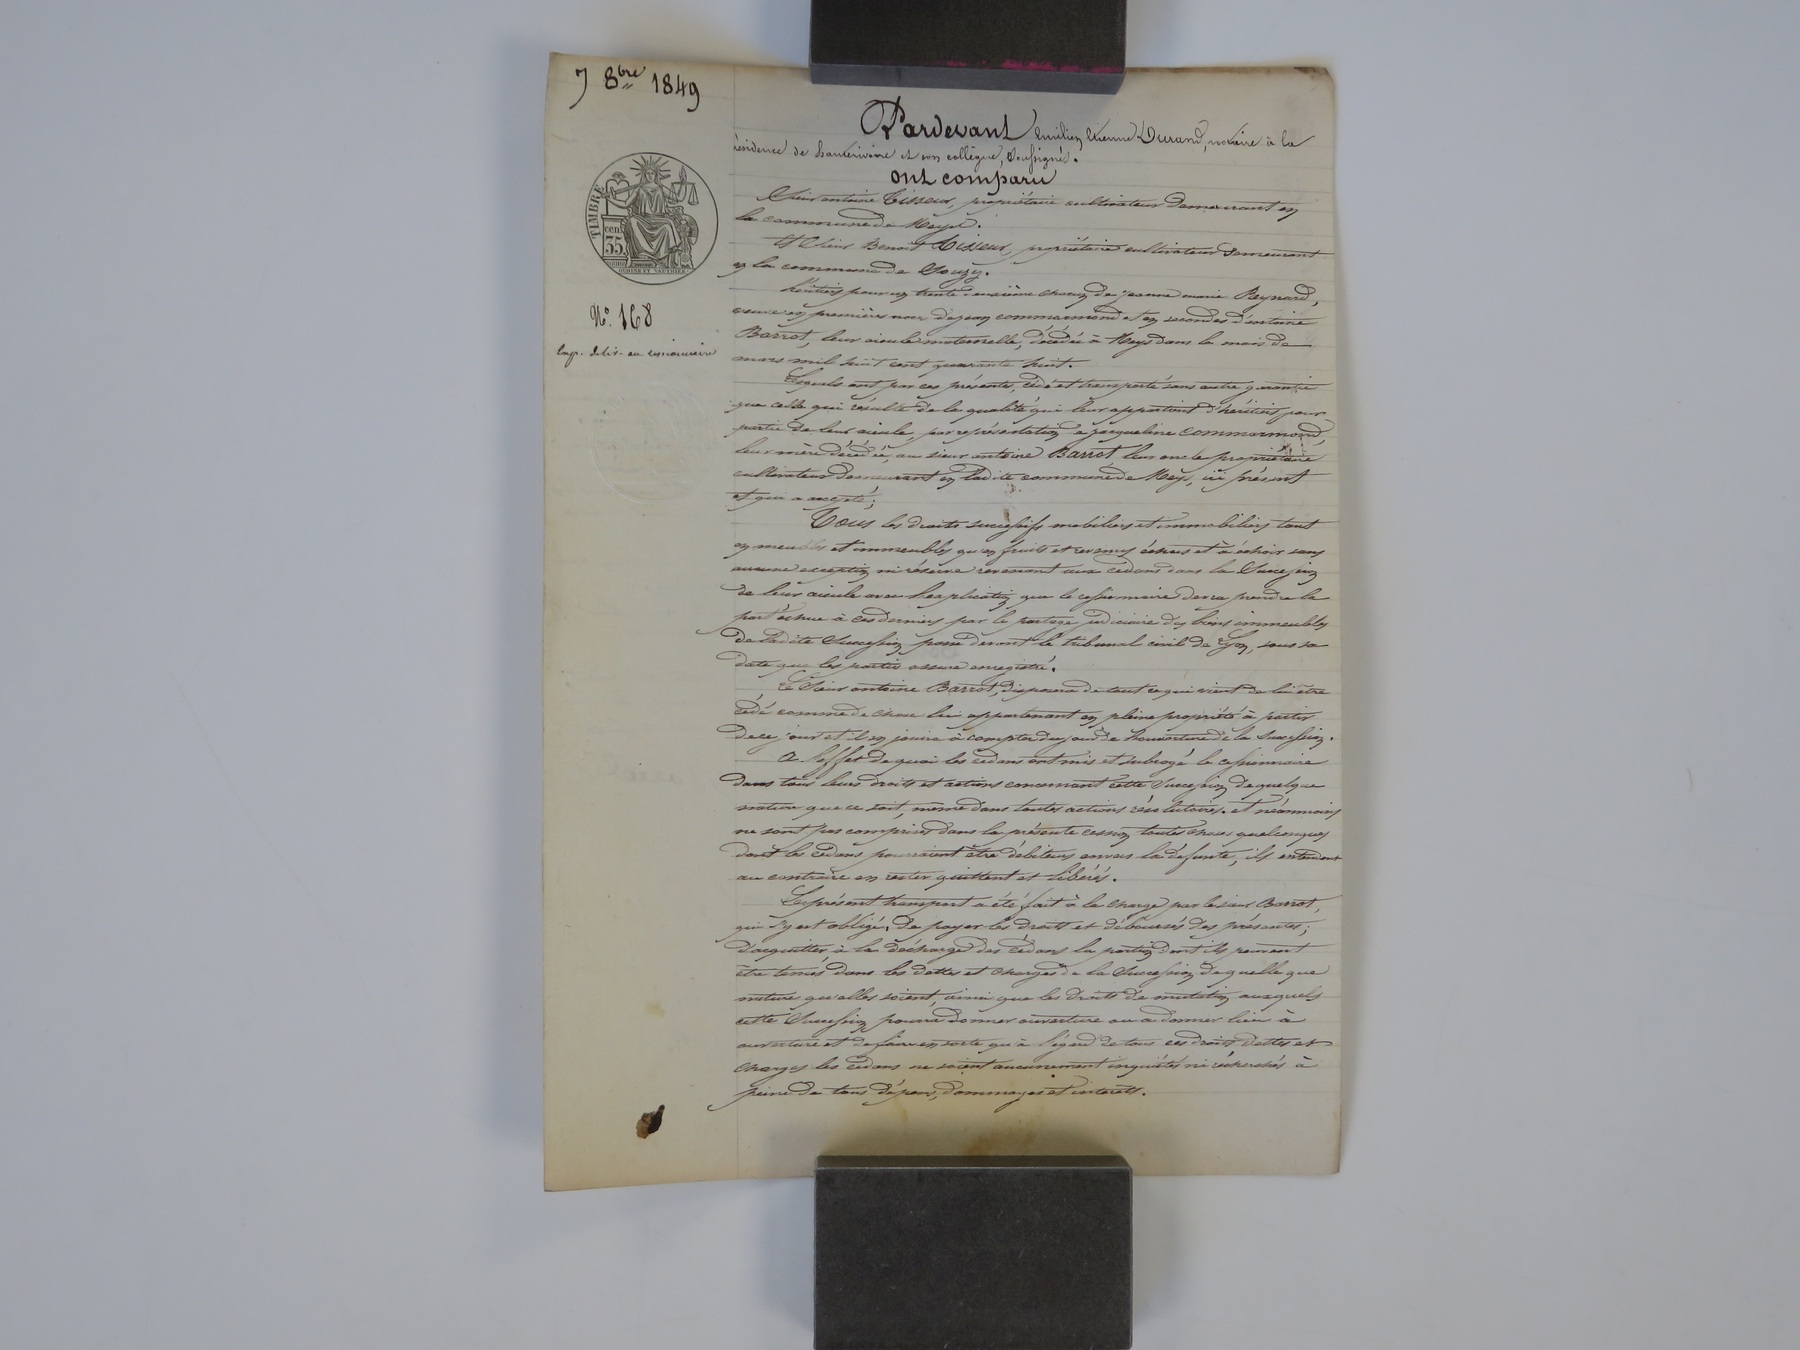 7 8bre 1849
Pardevant Emilien Etienne Durand, notaire à la
résidence de hauterivoire et son collègue, soussignés.
ont comparu
TIMBRE
cen.
35.
N.º 168
Exp. délir. au cessionnaire
Sieur antoine Tisseur, propriétaire cultivateur demeurant en
la commune de Meys.
Et Sieur Benoit Tisseur, propriétaire cultivateur demeurant
en la commune de Souzy.
héritiers pour un trente deuxième chacun de jeanne marie Reynard,
veuve en premières noces de jean commarmond et en secondes d'antoine
Barrot, leur aieule maternelle, décédée à Meys dans le mois de
mars mil huit cent quarante huit.
Lesquels ont par ces présentes, cédé et transporté sans autre garantie
que celle qui résulte de la qualité qui leur appartient d'héritiers pour
partie de leur aieule par représentation de jacqueline commarmond,
leur mère décédée, au sieur antoine Barrot leur oncle propriétaire
cultivateur demeurant en ladite commune de Meys, ici présent
et qui a accepté;
Tous les droits successifs mobiliers et immobiliers tant
en meubles et immeubles qu'en fruits et revenus échus et à échoir sans
aucune exception ni réserve revenant aux cédans dans la succession
de leur aieule avec l'explication que le cessionnaire devra prendre la
part échue à ces derniers par le partage judiciaire des biens immeubles
de ladite succession passé devant le tribunal civil de Lyon, sous sa
date que les parties assure enregistré.
Le Sieur antoine Barrot, disposera de tout ce qui vient de lui être
cédé comme de chose lui appartenant en pleine propriété à partir
de ce jour et il en jouira à compter du jour de l'ouverture de la succession.
A l'effet de quoi les cédans ont mis et subrogé le cessionnaire
dans tous leurs droits et actions concernant cette succession de quelque
nature que ce soit, même dans toutes actions résolutoires. et néanmoins
ne sont pas comprises dans la présente cession toutes choses quelconques
dont les cédans pourraient être débiteurs envers la défunte, ils entendent
au contraire en rester quittent et libérés.
Le présent transport a été fait à la charge par le sieur Barrot,
qui s'y est obligé; de payer les droits et déboursés des présentes;
d'acquitter à la décharge des cédans la portion dont ils peuvent
être tenus dans les dettes et charges de la succession de quelle que
nature qu'elles soient, ainsi que les droits de mutation auxquels
cette succession pourra donner ouverture ou a donner lieu à
ouverture et de faire en sorte qu'à l'égard de tous ces droits dettes et
charges les cédans ne soient aucunement inquiétés ni recherchés à
peine de tous dépens, dommages et intérêts.